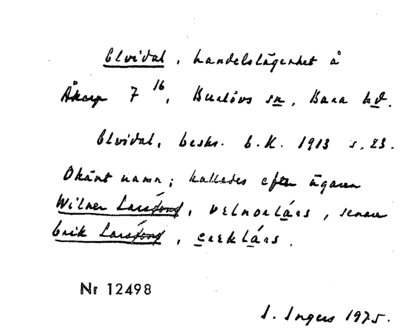 Elvidal, handelslägenhet å
Åkarp 7 16, Burlövs sn, Bara hd.
Elvidal, beskr. E.K. 1913 s. 23.
Okänt namn; kallades efter ägaren
Wilner Larsfong, senare
Erik Larsfong,
Nr 12498
I. Ingers 1975.